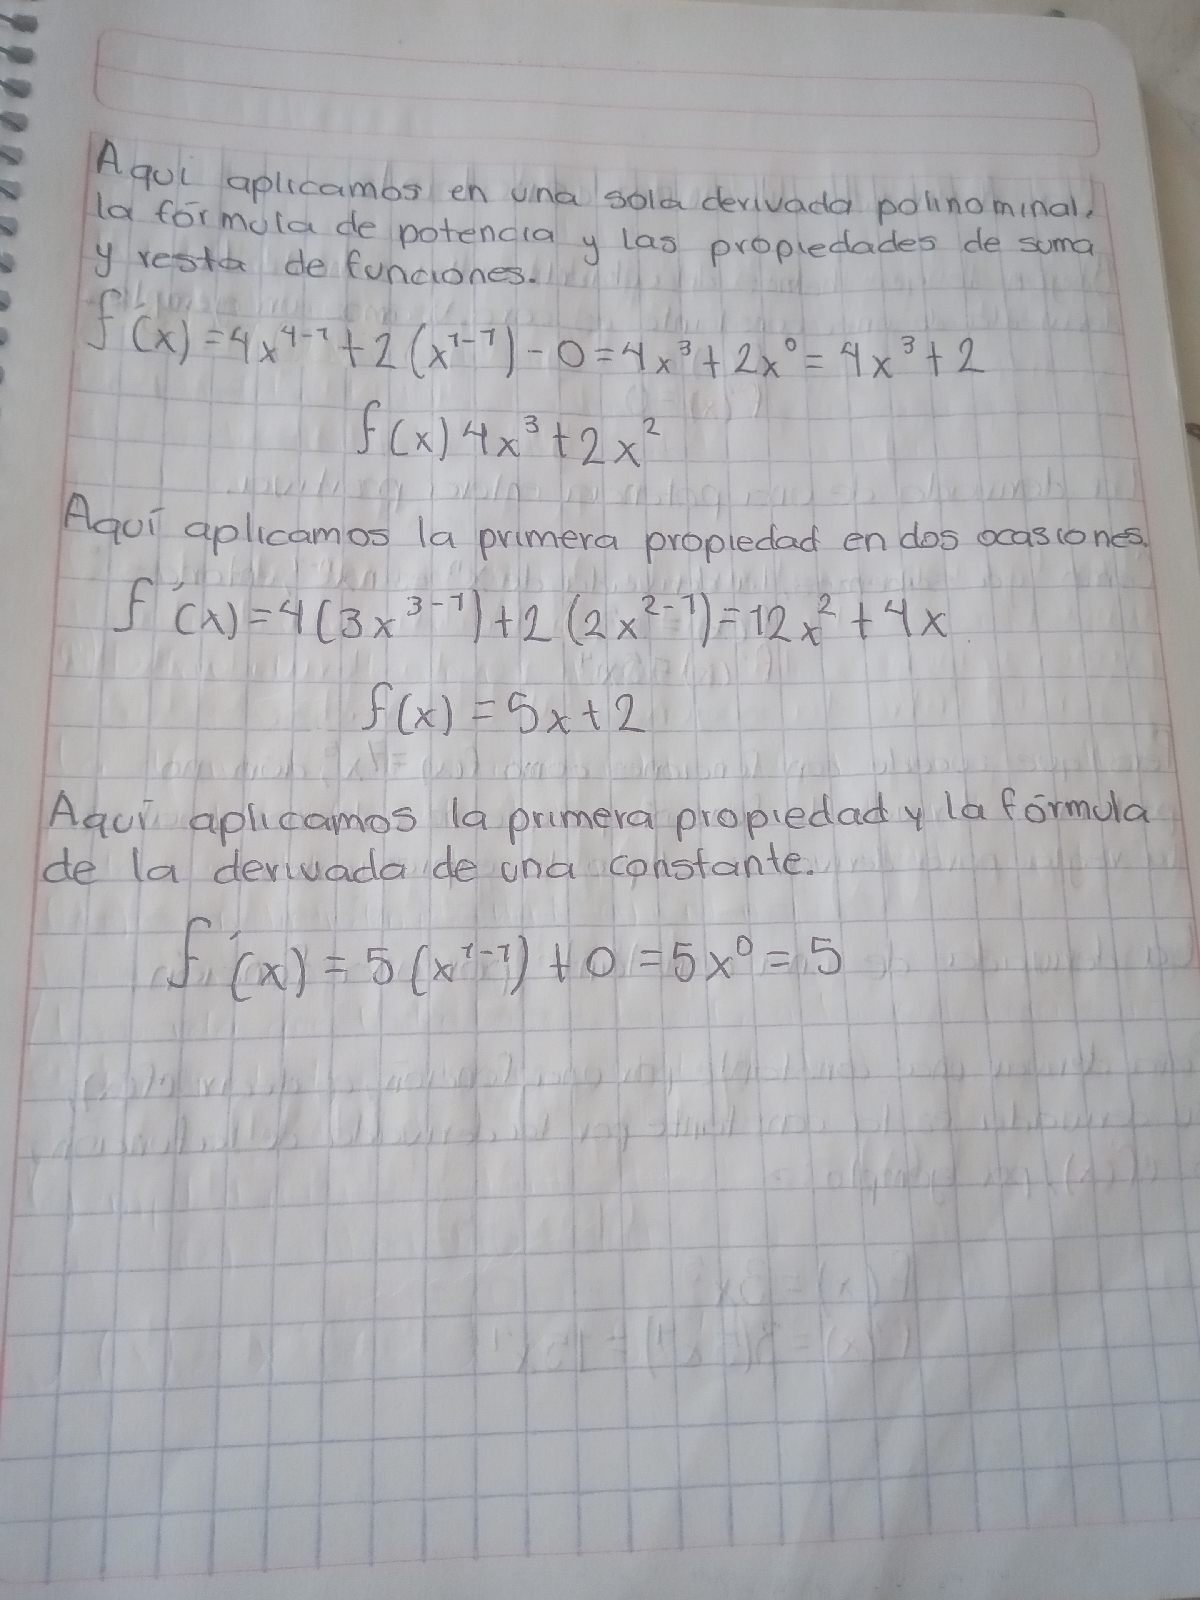 Aquí aplicamos en una sola derivada polinominal,
la fórmula de potencia y las propiedades de suma
y resta de funciones.
f'(x)=4x⁴⁻¹+2(x¹⁻¹)-0=4x³+2x⁰=4x³+2
f(x)4x³+2x²
Aquí aplicamos la primera propiedad en dos ocasiones.
f'(x)=4(3x³⁻¹)+2(2x²⁻¹)=12x²+4x
f(x)=5x+2
Aquí aplicamos la primera propiedad y la fórmula
de la derivada de una constante.
f'(x)=5(x¹⁻¹)+0=5x⁰=5